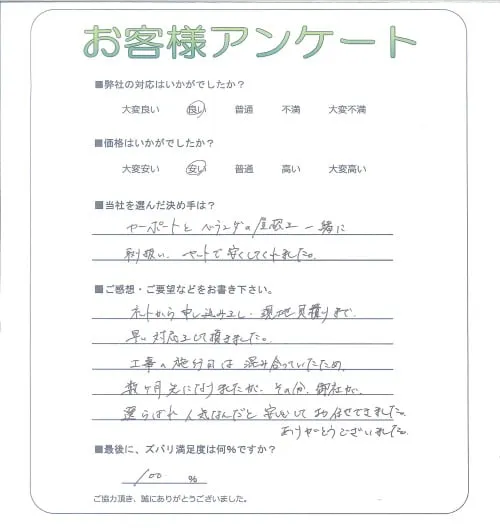 お客様アンケート
■弊社の対応はいかがでしたか？
大変良い 良い 普通 不満 大変不満
■価格はいかがでしたか？
大変安い 安い 普通 高い 大変高い
■当社を選んだ決め手は？
カーポートとベランダの屋根を一緒に
取扱い、セットで安くしてくれました。
■ご感想・ご要望などをお書き下さい。
ネットから申し込みをし、現地見積りまで、
早い対応をして頂きました。
工事の施行日は混み合っていたため、
数ヶ月先になりましたが、その分、御社が、
選らばれ人気なんだと安心してお任せできました。
ありがとうございました。
■最後に、ズバリ満足度は何％ですか？
100 %
ご協力頂き、誠にありがとうございました。